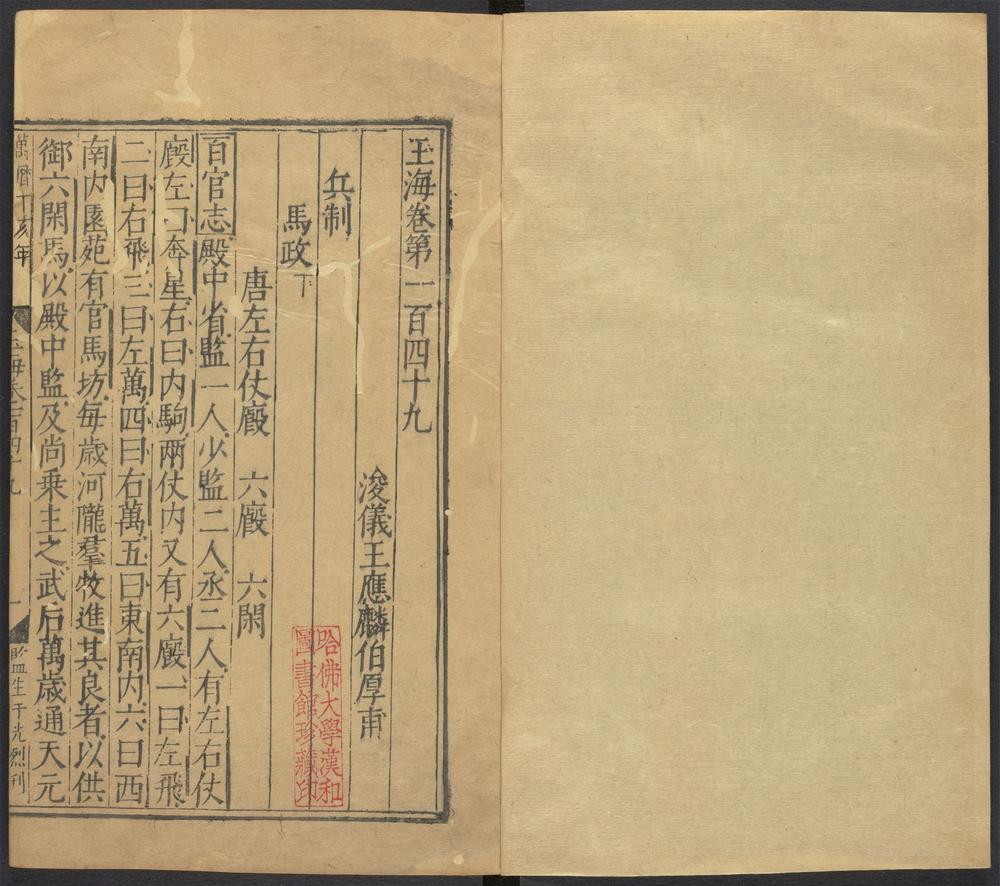 玉海卷第一百四十九
浚儀王應麟伯厚甫
兵制
馬政下
唐左右仗廄　六廄　六閑
百官志殿中省監一人少監二人丞二人有左右仗
廄左曰奔星右曰内駒兩仗内又有六廄一曰左飛
二曰右飛三曰左萬四曰右萬五曰東南内六曰西
南内園苑有官馬坊每歲河隴羣牧進其良者以供
御六閑馬以殿中監及尚乗主之武后萬歲通天元
萬曆丁亥年
玉海卷一百四十九
一
監生于先烈刊
哈佛大學漢和
圖書館珍藏印